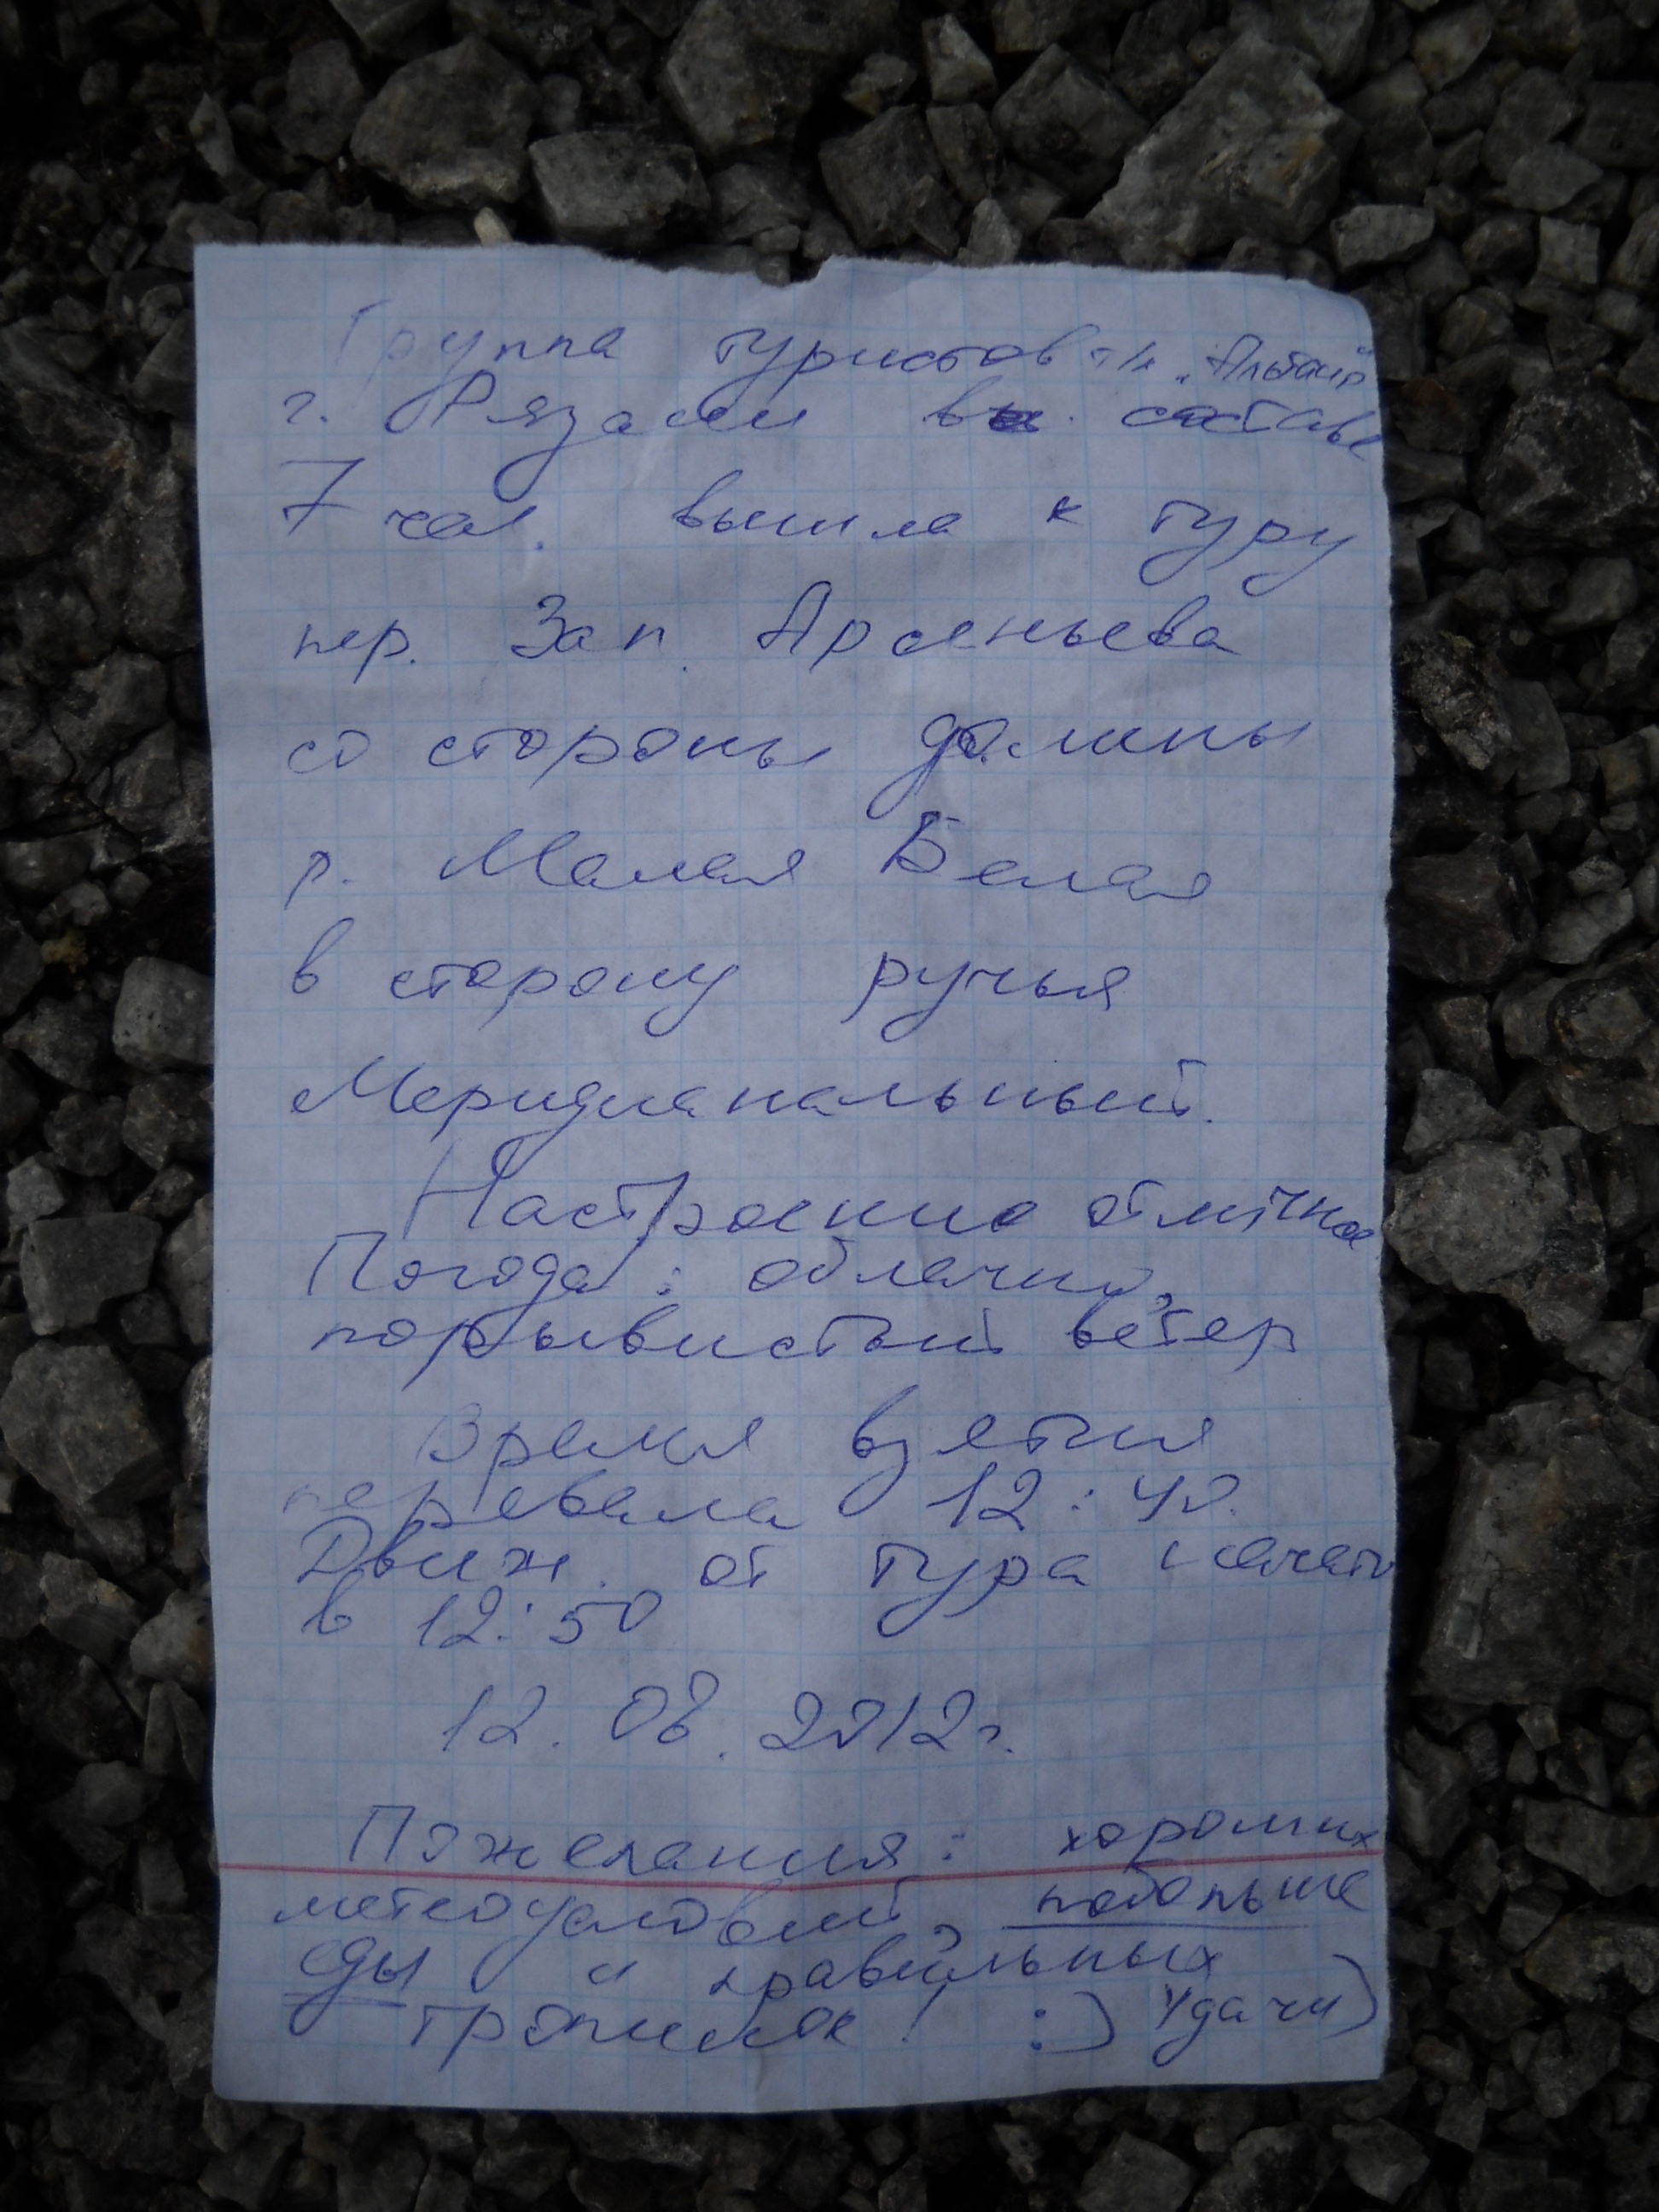 Группа туристов т/к „Альтаир"
г. Рязани в составе
7 чел. вышла к туру
пер. Зап. Арсеньева
со стороны долины
р. Малая Белая
в сторону ручья
Меридианальный.
Настроение отличное
Погода: облачно,
порывистый ветер
Время взятия
перевала 12:40.
Движ. от тура начато
в 12:50
12.08.2012г.
Пожелания: хороших
метеоусловий, побольше
еды и правильных
тропинок! :) Удачи)